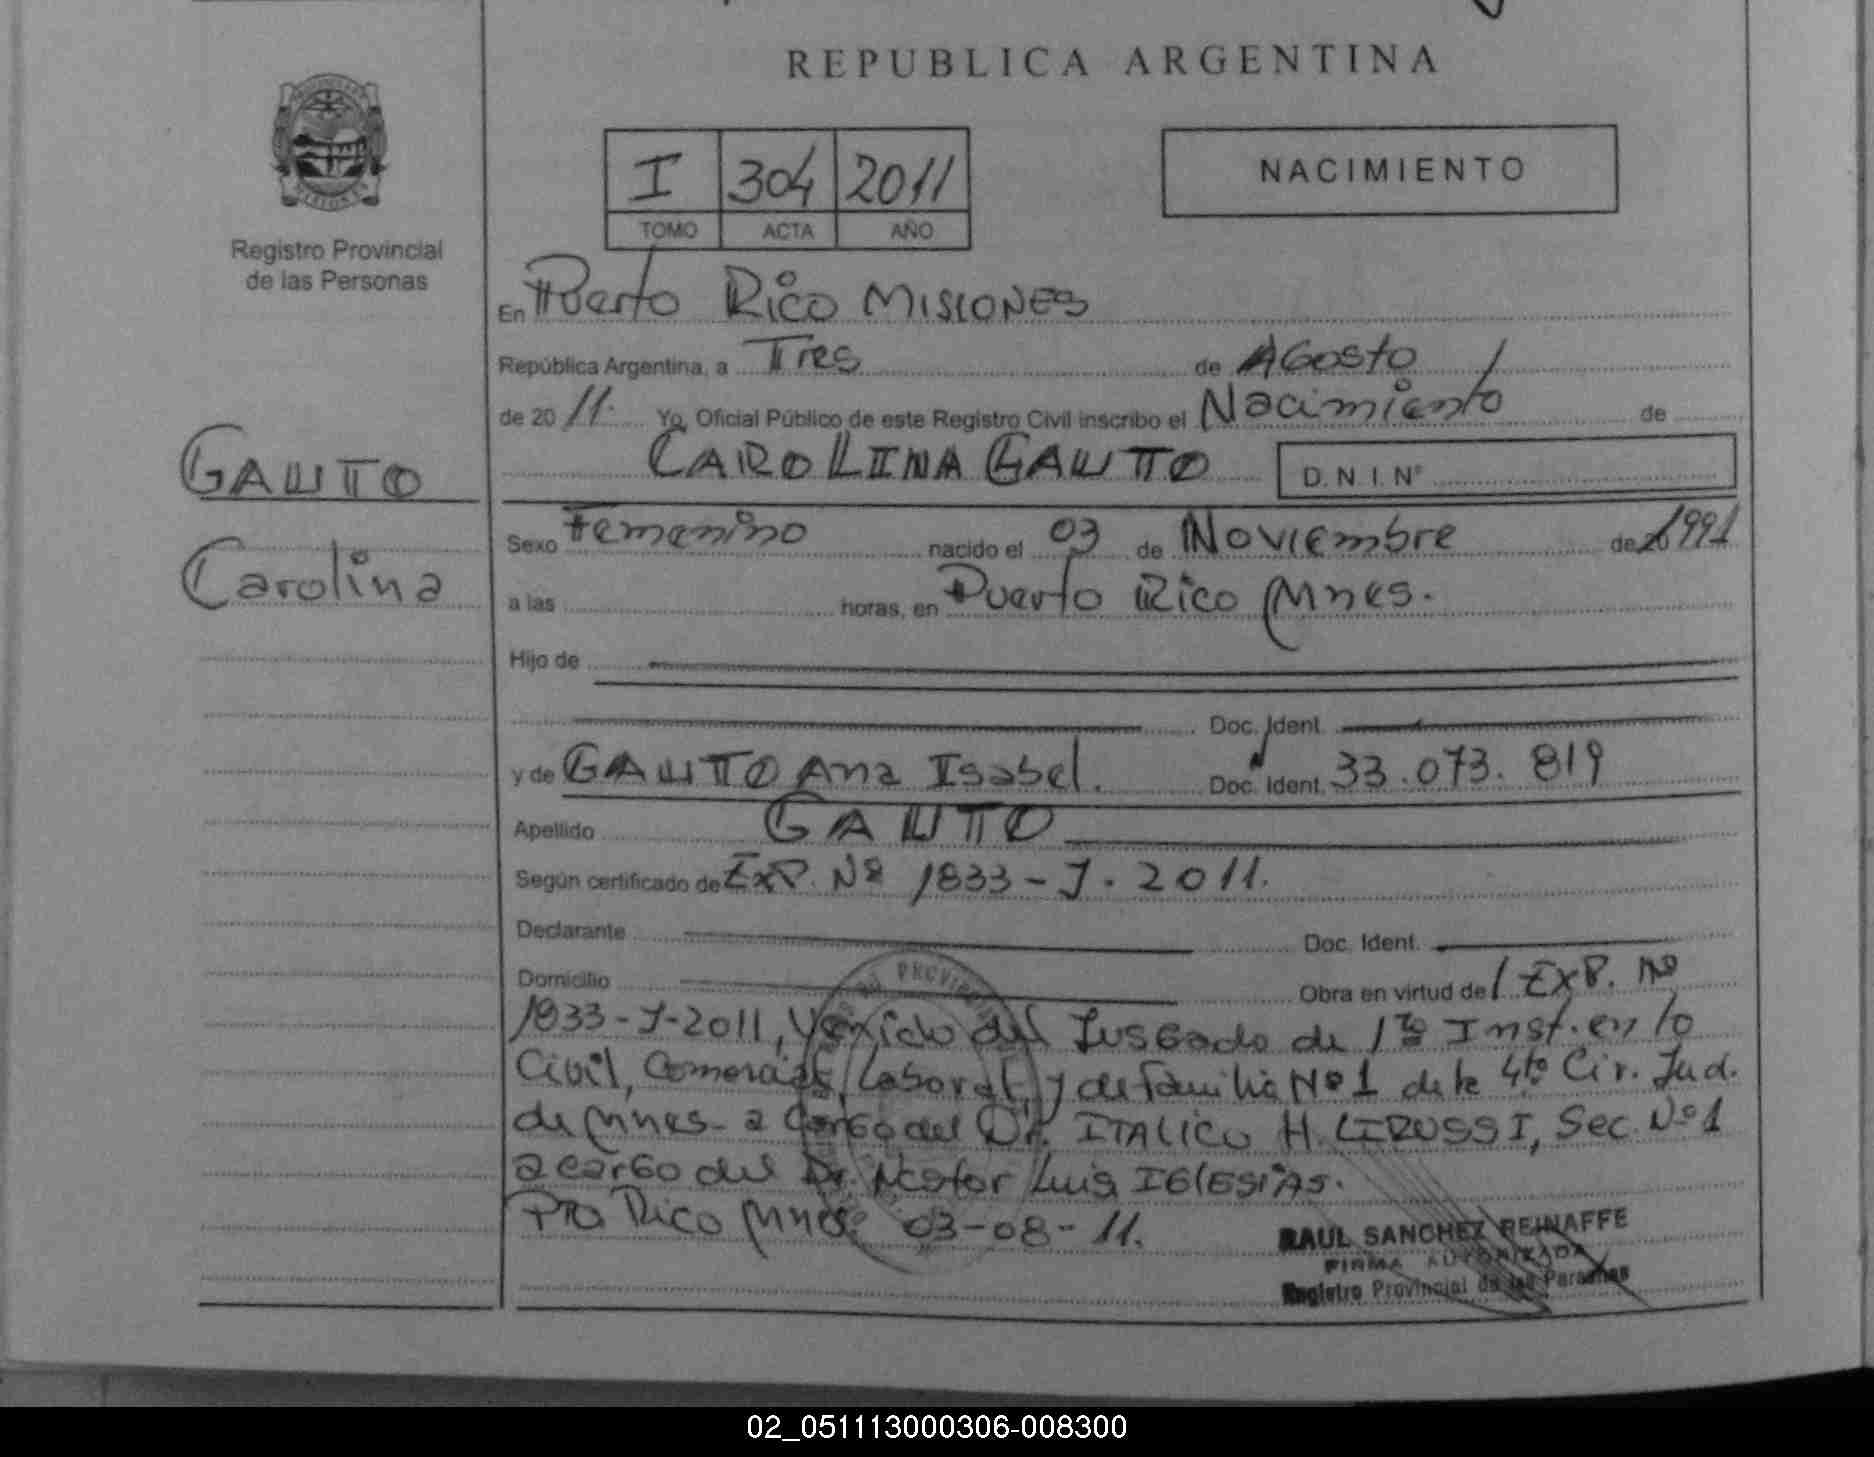 REPUBLICA ARGENTINA
I 304 2011
TOMO ACTA AÑO
NACIMIENTO
Registro Provincial
de las Personas
En Puerto Rico MISIONES
República Argentina, a Tres de AGosto
de 20 11. Yo, Oficial Público de este Registro Civil inscribo el Nacimiento de
CAROLINA GAUTO D.N.I. Nº
GAUTO
Carolina
Sexo Femenino nacido el 03 de Noviembre de 1991
a las horas, en Puerto Rico Mnes.
Hijo de
Doc. Ident.
y de GAUTO Ana Isabel. Doc. Ident. 33.073.819
Apellido GAUTO
Según certificado de Exp. Nº 1833-J-2011.
Declarante Doc. Ident.
Domicilio Obra en virtud del Exp. Nº
1833-J-2011, Venido del Jusgado de 1ra Inst. en lo
Civil, Comercial, Laboral, y de familia Nº1 de la 4ta Cir. Jud.
de Mnes- a Cargo del Dr. ITALICO H. LIRUSSI, Sec. Nº1
a cargo del Dr. Nestor Luis IGLESIAS.
Pto Rico Mnes. 03-08-11.
RAUL SANCHEZ REINAFFE
FIRMA AUTORIZADA
Registro Provincial de las Personas
02_051113000306-008300